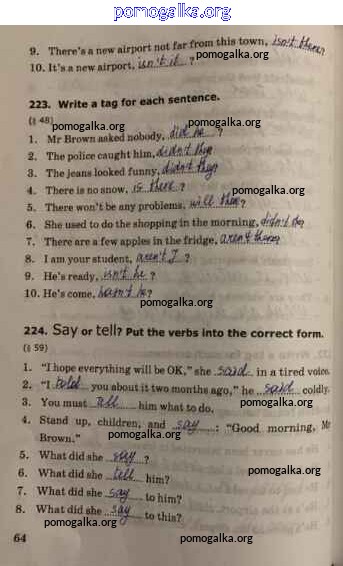 pomogalka.org
9. There's a new airport not far from this town, isn't there?
10. It's a new airport, isn't it ?
pomogalka.org
223. Write a tag for each sentence.
(§ 48)
pomogalka.org pomogalka.org
1. Mr Brown asked nobody, did he ?
2. The police caught him, didn't they
3. The jeans looked funny, didn't they?
4. There is no snow, is there ?
pomogalka.org
5. There won't be any problems, will there?
6. She used to do the shopping in the morning, didn't she?
7. There are a few apples in the fridge, aren't there?
8. I am your student, aren't I ?
9. He's ready, isn't he ?
10. He's come, hasn't he?
pomogalka.org
224. Say or tell? Put the verbs into the correct form.
(§ 59)
pomogalka.org
1. "I hope everything will be OK," she said in a tired voice.
2. "I told you about it two months ago," he said coldly.
3. You must tell him what to do.
pomogalka.org
4. Stand up, children, and say : "Good morning, Mr
Brown."
pomogalka.org
5. What did she say ?
6. What did she tell him?
pomogalka.org
7. What did she say to him?
8. What did she say to this?
pomogalka.org
64
pomogalka.org